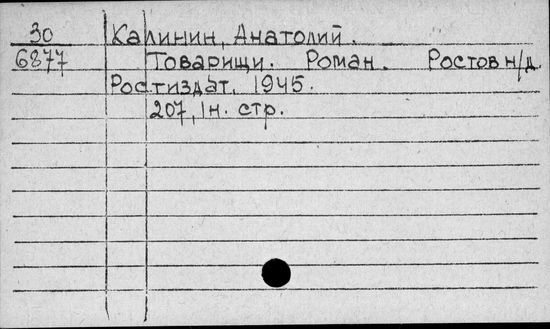 30 Калинин, Анатолий.
6877 Товарищи. Роман. Ростов н/Д.
Ростиздат, 1945.
207, 1 н. стр.